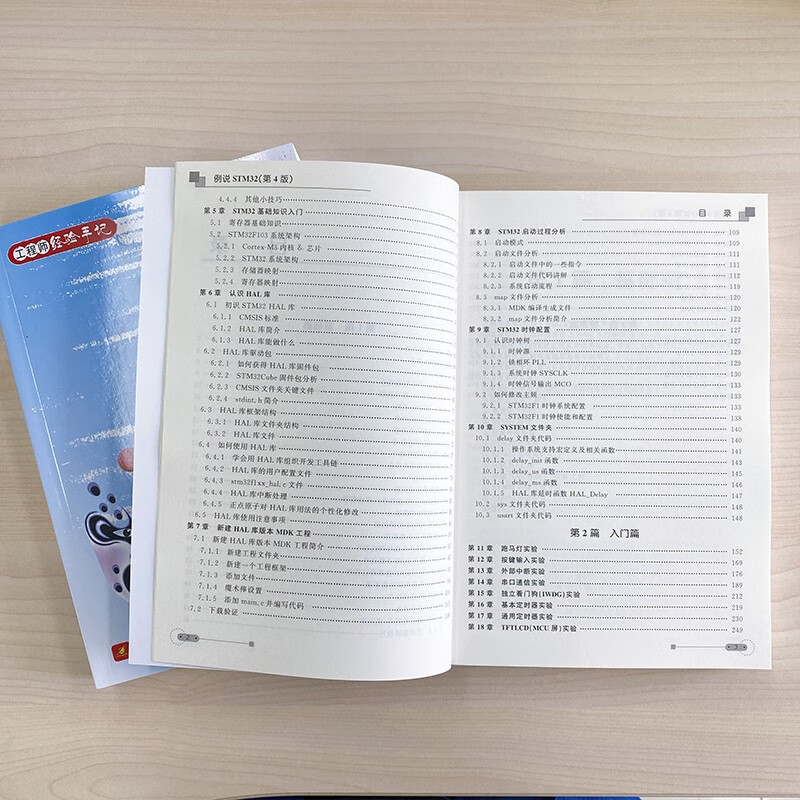 工程师经验手记
例说 STM32(第 4 版)
4.4.4 其他小技巧
第 5 章 STM32 基础知识入门
5.1 寄存器基础知识
5.2 STM32F103 系统架构
5.2.1 Cortex-M3 内核 & 芯片
5.2.2 STM32 系统架构
5.2.3 存储器映射
5.2.4 寄存器映射
第 6 章 认识 HAL 库
6.1 初识 STM32 HAL 库
6.1.1 CMSIS 标准
6.1.2 HAL 库简介
6.1.3 HAL 库能做什么
6.2 HAL 库驱动包
6.2.1 如何获得 HAL 库固件包
6.2.2 STM32Cube 固件包分析
6.2.3 CMSIS 文件夹关键文件
6.2.4 stdint.h 简介
6.3 HAL 库框架结构
6.3.1 HAL 库文件夹结构
6.3.2 HAL 库文件
6.4 如何使用 HAL 库
6.4.1 学会用 HAL 库组织开发工具链
6.4.2 HAL 库的用户配置文件
6.4.3 stm32f1xx_hal.c 文件
6.4.4 HAL 库中断处理
6.4.5 正点原子对 HAL 库用法的个性化修改
6.5 HAL 库使用注意事项
第 7 章 新建 HAL 库版本 MDK 工程
7.1 新建 HAL 库版本 MDK 工程简介
7.1.1 新建工程文件夹
7.1.2 新建一个工程框架
7.1.3 添加文件
7.1.4 魔术棒设置
7.1.5 添加 main.c 并编写代码
7.2 下载验证
2
目 录
第 8 章 STM32 启动过程分析 109
8.1 启动模式 109
8.2 启动文件分析 111
8.2.1 启动文件中的一些指令 111
8.2.2 启动文件代码讲解 112
8.2.3 系统启动流程 119
8.3 map 文件分析 120
8.3.1 MDK 编译生成文件 120
8.3.2 map 文件分析简介 122
第 9 章 STM32 时钟配置 127
9.1 认识时钟树 127
9.1.1 时钟源 129
9.1.2 锁相环 PLL 129
9.1.3 系统时钟 SYSCLK 130
9.1.4 时钟信号输出 MCO 133
9.2 如何修改主频 133
9.2.1 STM32F1 时钟系统配置 133
9.2.2 STM32F1 时钟使能和配置 138
第 10 章 SYSTEM 文件夹 140
10.1 delay 文件夹代码 140
10.1.1 操作系统支持宏定义及相关函数 141
10.1.2 delay_init 函数 143
10.1.3 delay_us 函数 145
10.1.4 delay_ms 函数 146
10.1.5 HAL 库延时函数 HAL_Delay 147
10.2 sys 文件夹代码 148
10.3 usart 文件夹代码 148
第 2 篇 入门篇
第 11 章 跑马灯实验 152
第 12 章 按键输入实验 169
第 13 章 外部中断实验 176
第 14 章 串口通信实验 189
第 15 章 独立看门狗(IWDG)实验 212
第 16 章 基本定时器实验 219
第 17 章 通用定时器实验 230
第 18 章 TFTLCD(MCU 屏)实验 249
3